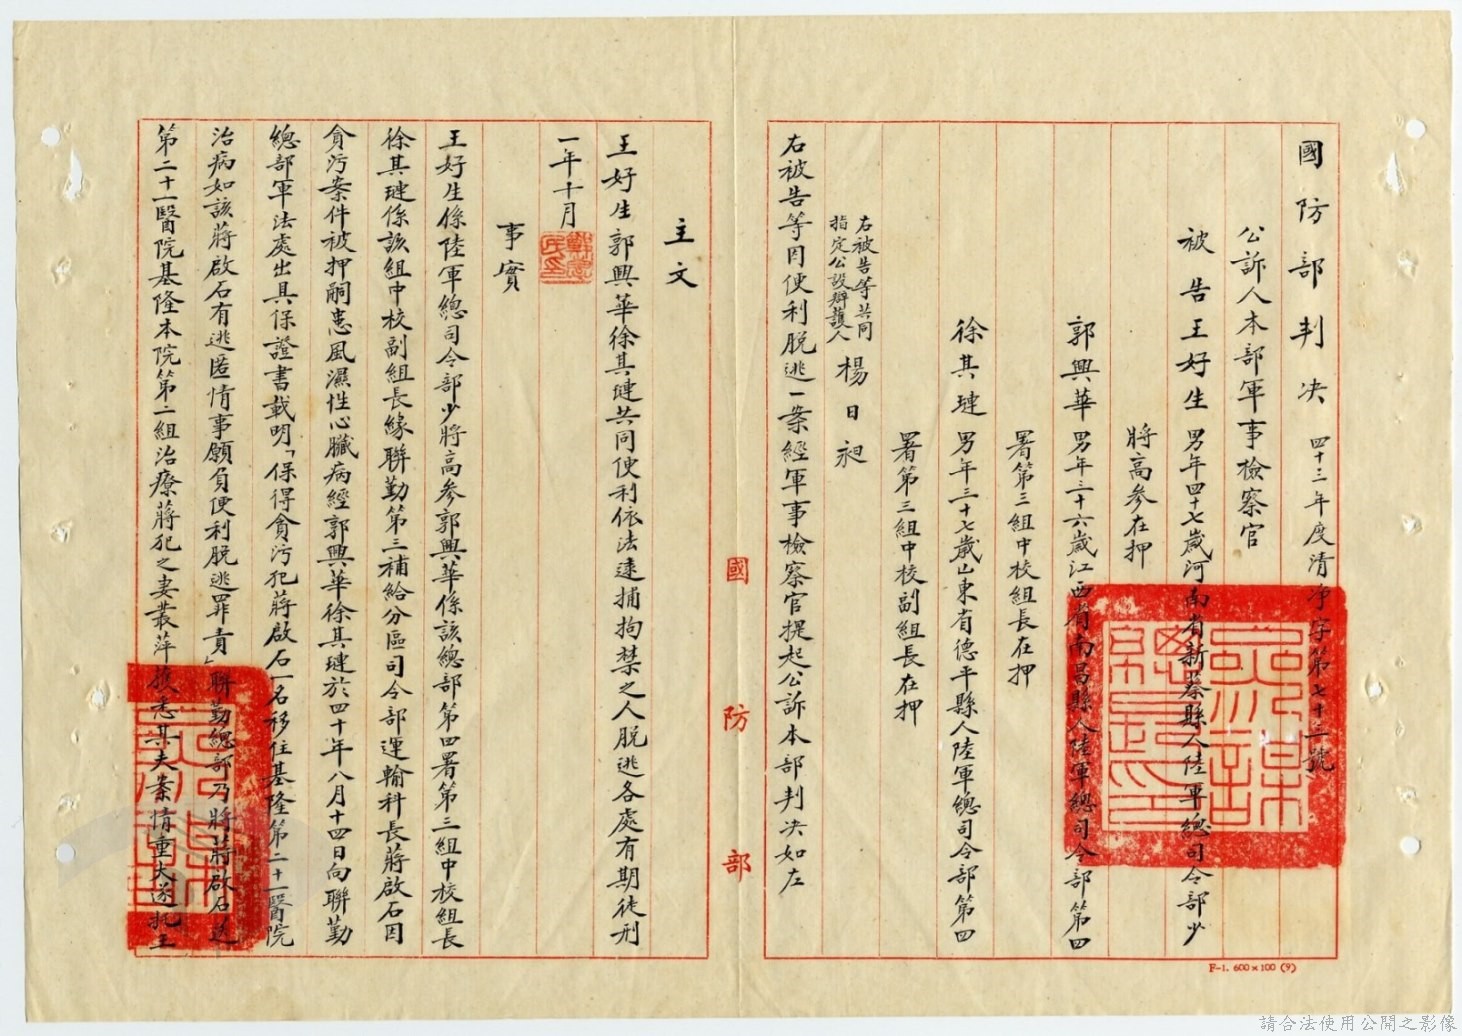 國防部判決 四十二年度清淨字第七十三號
公訴人本部軍事檢察官
被告王好生 男年四十七歲河南省新蔡縣人陸軍總司令部少
將高參在押
郭興華 男年三十六歲江西省南昌縣人陸軍總司令部第四
署第三組中校組長在押
徐其璉 男年三十七歲山東省德平縣人陸軍總司令部第四
署第三組中校副組長在押
右被告等共同
指定公設辯護人 楊日昶
右被告等因便利脫逃一案經軍事檢察官提起公訴本部判决如左
國防部
主文
王好生郭興華徐其璉共同便利依法逮捕拘禁之人脫逃各處有期徒刑
一年十月
事實
王好生係陸軍總司令部少將高參郭興華係該總部第四署第三組中校組長
徐其璉係該組中校副組長緣聯勤第三補給分區司令部運輸科長蔣啟石因
貪污案件被押嗣患風濕性心臟病經郭興華徐其璉於四十年八月十四日向聯勤
總部軍法處出具保證書載明「保得貪污犯蔣啟石一名移住基隆第二十一醫院
治病如該蔣啟石有逃匿情事願負便利脫逃罪責」聯勤總部乃將蔣啟石送
第二十一醫院基隆本院第二組治療蔣犯之妻叢萍獲悉其夫案情重大遂託王
F-1. 600×100 (9)
請合法使用公開之影像